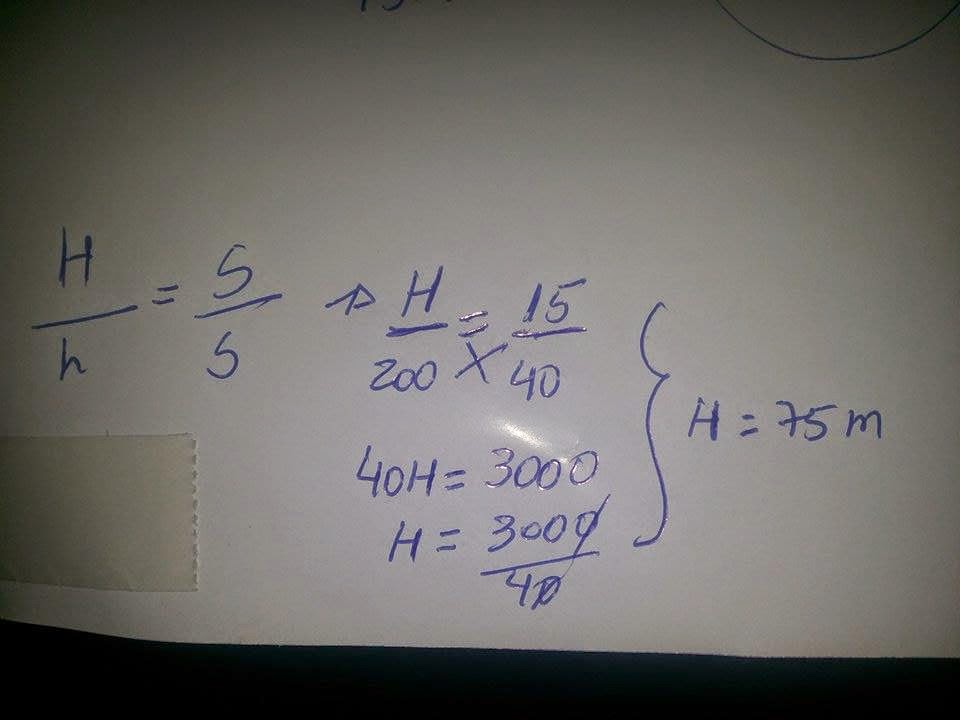 H/h = S/s → H/200 = 15/40
40H = 3000
H = 3000/40
H = 75 m